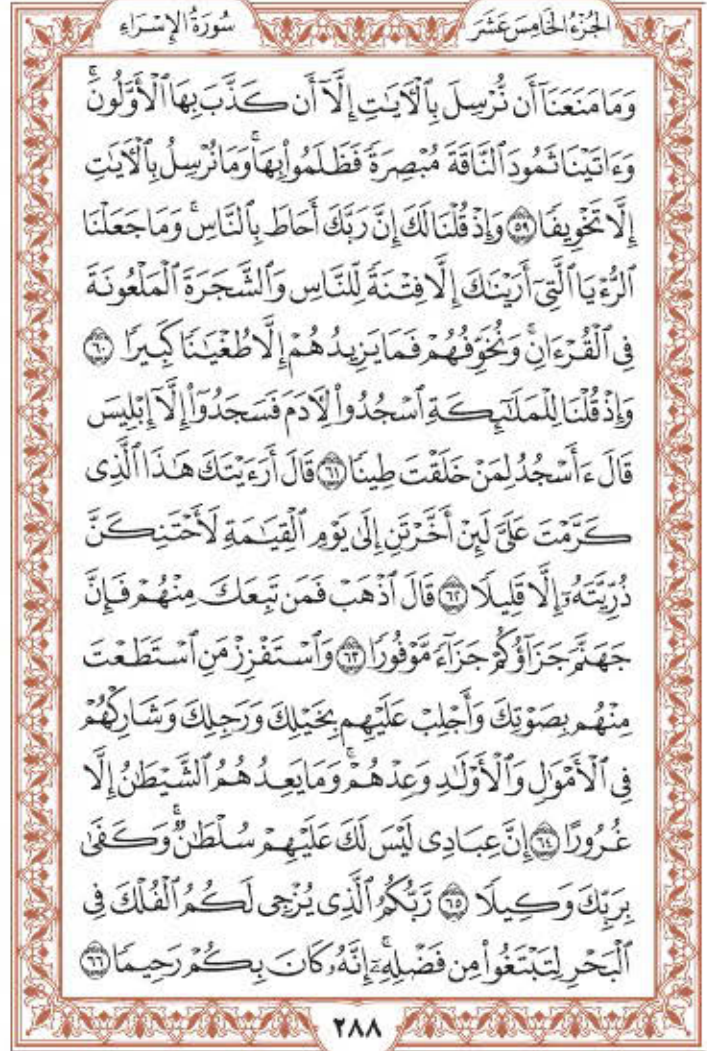 الجُزْءُ الخَامِسَ عَشَرَ سُورَةُ الإِسْرَاءِ
وَمَا مَنَعَنَآ أَن نُّرْسِلَ بِٱلْأٓيَٰتِ إِلَّآ أَن كَذَّبَ بِهَا ٱلْأَوَّلُونَۚ
وَءَاتَيْنَا ثَمُودَ ٱلنَّاقَةَ مُبْصِرَةً فَظَلَمُوا۟ بِهَاۚ وَمَا نُرْسِلُ بِٱلْأٓيَٰتِ
إِلَّا تَخْوِيفًا ٥٩ وَإِذْ قُلْنَا لَكَ إِنَّ رَبَّكَ أَحَاطَ بِٱلنَّاسِۚ وَمَا جَعَلْنَا
ٱلرُّءْيَا ٱلَّتِىٓ أَرَيْنَٰكَ إِلَّا فِتْنَةً لِّلنَّاسِ وَٱلشَّجَرَةَ ٱلْمَلْعُونَةَ
فِى ٱلْقُرْءَانِۚ وَنُخَوِّفُهُمْ فَمَا يَزِيدُهُمْ إِلَّا طُغْيَٰنًا كَبِيرًا ٦٠
وَإِذْ قُلْنَا لِلْمَلَٰٓئِكَةِ ٱسْجُدُوا۟ لِأٓدَمَ فَسَجَدُوٓا۟ إِلَّآ إِبْلِيسَ
قَالَ ءَأَسْجُدُ لِمَنْ خَلَقْتَ طِينًا ٦١ قَالَ أَرَءَيْتَكَ هَٰذَا ٱلَّذِى
كَرَّمْتَ عَلَىَّ لَئِنْ أَخَّرْتَنِ إِلَىٰ يَوْمِ ٱلْقِيَٰمَةِ لَأَحْتَنِكَنَّ
ذُرِّيَّتَهُۥٓ إِلَّا قَلِيلًا ٦٢ قَالَ ٱذْهَبْ فَمَن تَبِعَكَ مِنْهُمْ فَإِنَّ
جَهَنَّمَ جَزَآؤُكُمْ جَزَآءً مَّوْفُورًا ٦٣ وَٱسْتَفْزِزْ مَنِ ٱسْتَطَعْتَ
مِنْهُم بِصَوْتِكَ وَأَجْلِبْ عَلَيْهِم بِخَيْلِكَ وَرَجِلِكَ وَشَارِكْهُمْ
فِى ٱلْأَمْوَٰلِ وَٱلْأَوْلَٰدِ وَعِدْهُمْۚ وَمَا يَعِدُهُمُ ٱلشَّيْطَٰنُ إِلَّا
غُرُورًا ٦٤ إِنَّ عِبَادِى لَيْسَ لَكَ عَلَيْهِمْ سُلْطَٰنٌۚ وَكَفَىٰ
بِرَبِّكَ وَكِيلًا ٦٥ رَّبُّكُمُ ٱلَّذِى يُزْجِى لَكُمُ ٱلْفُلْكَ فِى
ٱلْبَحْرِ لِتَبْتَغُوا۟ مِن فَضْلِهِۦٓۚ إِنَّهُۥ كَانَ بِكُمْ رَحِيمًا ٦٦
٢٨٨